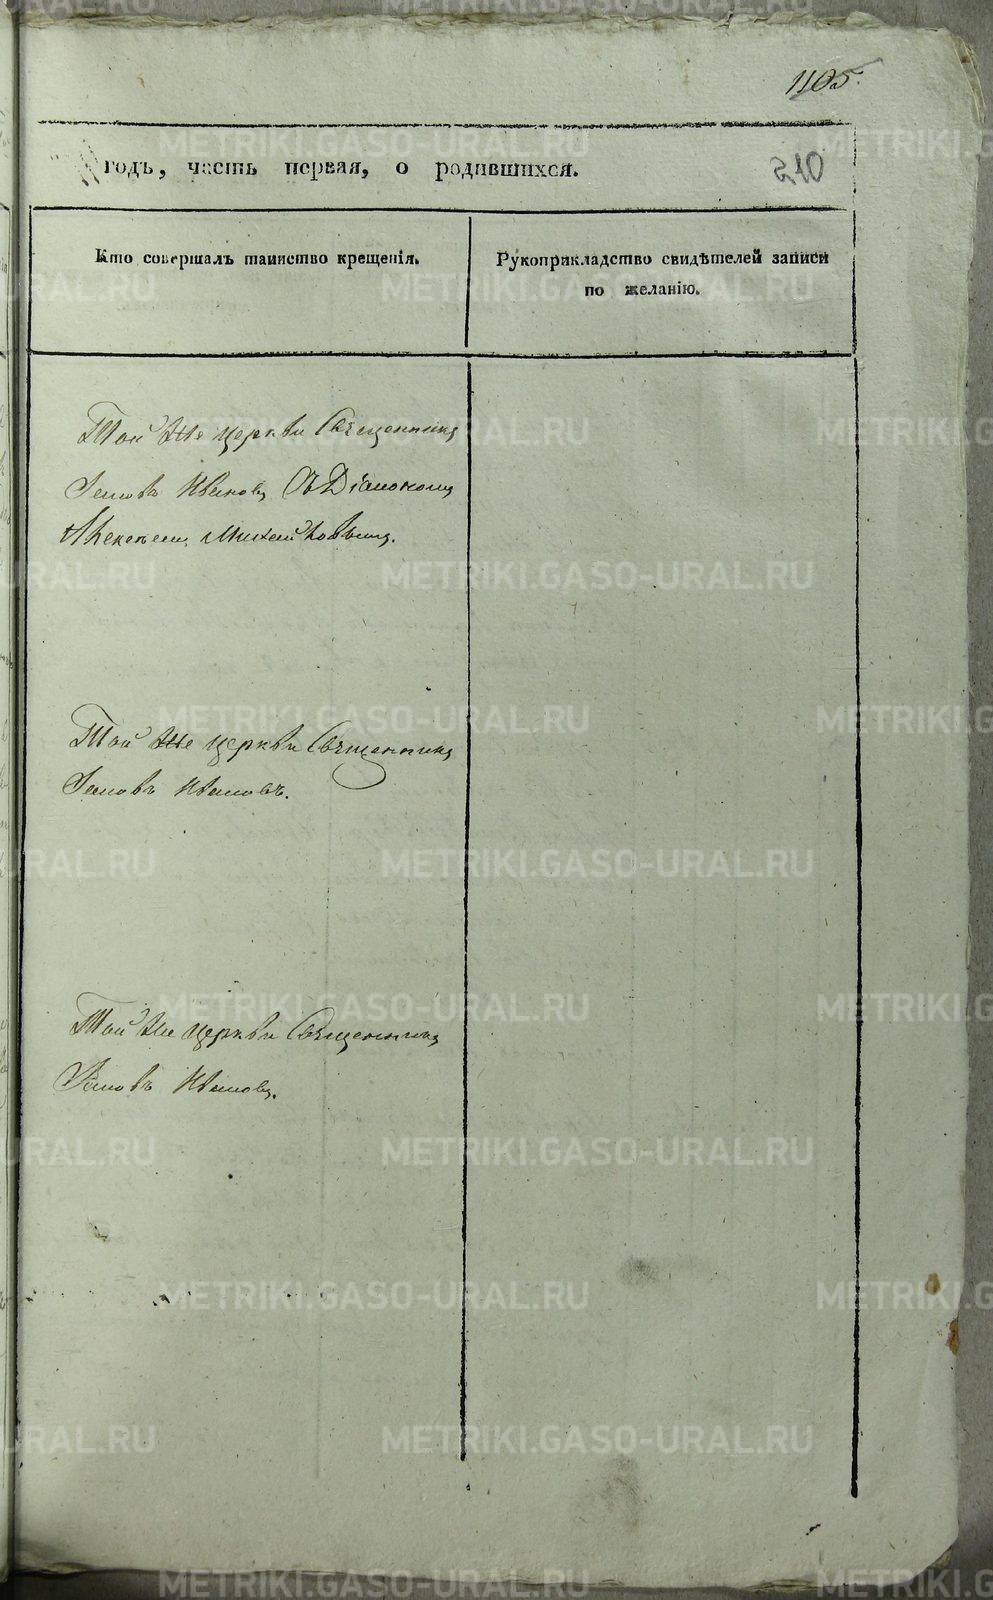 1105.
210
годъ, часть первая, о родившихся.
Кто совершалъ таинство крещенія.
Рукоприкладство свидѣтелей записи
по желанію.
Той же церкви Священникъ
Іаковъ Ивановъ, съ Діакономъ
Алексѣем Михайловымъ.
Той же церкви Священникъ
Іаковъ Ивановъ.
Той же церкви Священникъ
Іаковъ Ивановъ.
METRIKI.GASO-URAL.RU